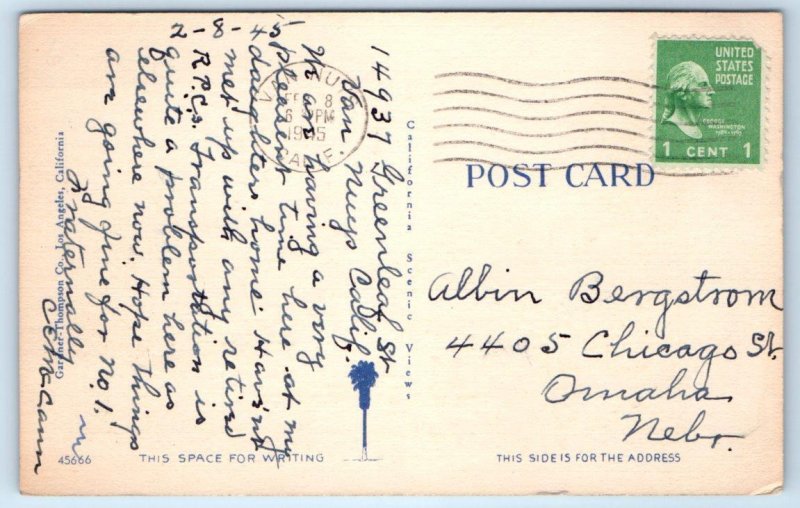 14937 Greenleaf St
Van Nuys Calif.
We are having a very
pleasant time here at my
daughters home. Havint
met up with any retired
R.P.C.s. Transportation is
quite a problem here as
elsewhere now. Hope things
are going fine for No. 1.
Fraternally
2-8-45
VAN NUYS
8
6 PM
1945
CALIF.
UNITED
STATES
POSTAGE
GEORGE
WASHINGTON
1 CENT 1
POST CARD
Albin Bergstrom
4405 Chicago St.
Omaha
Nebr.
California Scenic Views
Gardner-Thompson Co., Los Angeles, California
45666
THIS SPACE FOR WRITING
THIS SIDE IS FOR THE ADDRESS